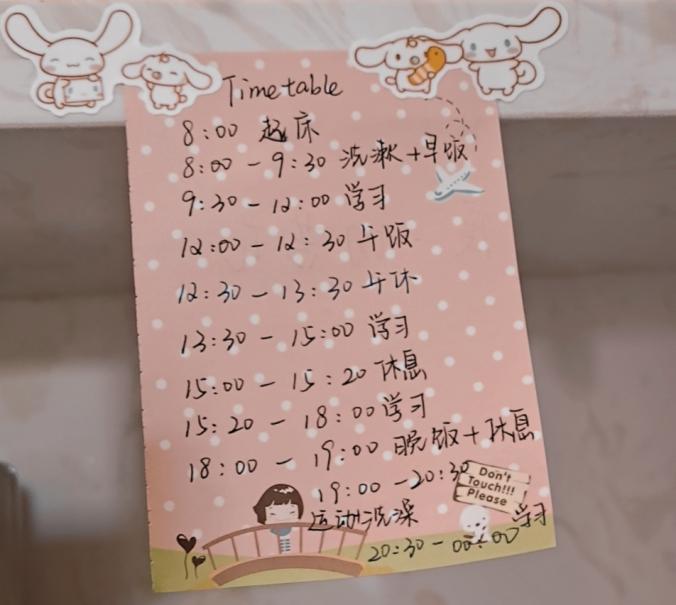 Timetable
8:00 起床
8:00 - 9:30 洗漱 + 早饭
9:30 - 12:00 学习
12:00 - 12:30 午饭
12:30 - 13:30 午休
13:30 - 15:00 学习
15:00 - 15:20 休息
15:20 - 18:00 学习
18:00 - 19:00 晚饭 + 休息
19:00 - 20:30
运动洗澡
20:30 - 00:00 学习
Don't
Touch!!!
Please